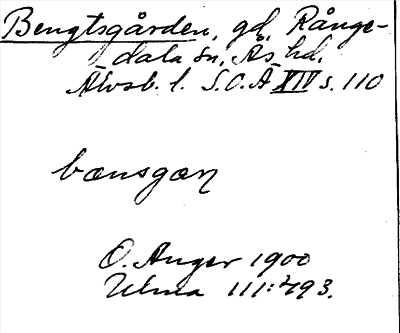 Bengtsgården, gd, Rånge-
dala sn, Ås hd,
Älvsb. l. S.O.Ä XIV s. 110
bænsgæn
O. Anger 1900
Ulma 111:493.